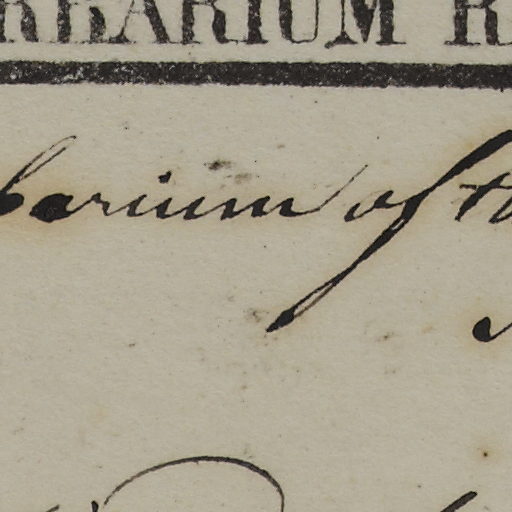 RBARIUM R
barium of th